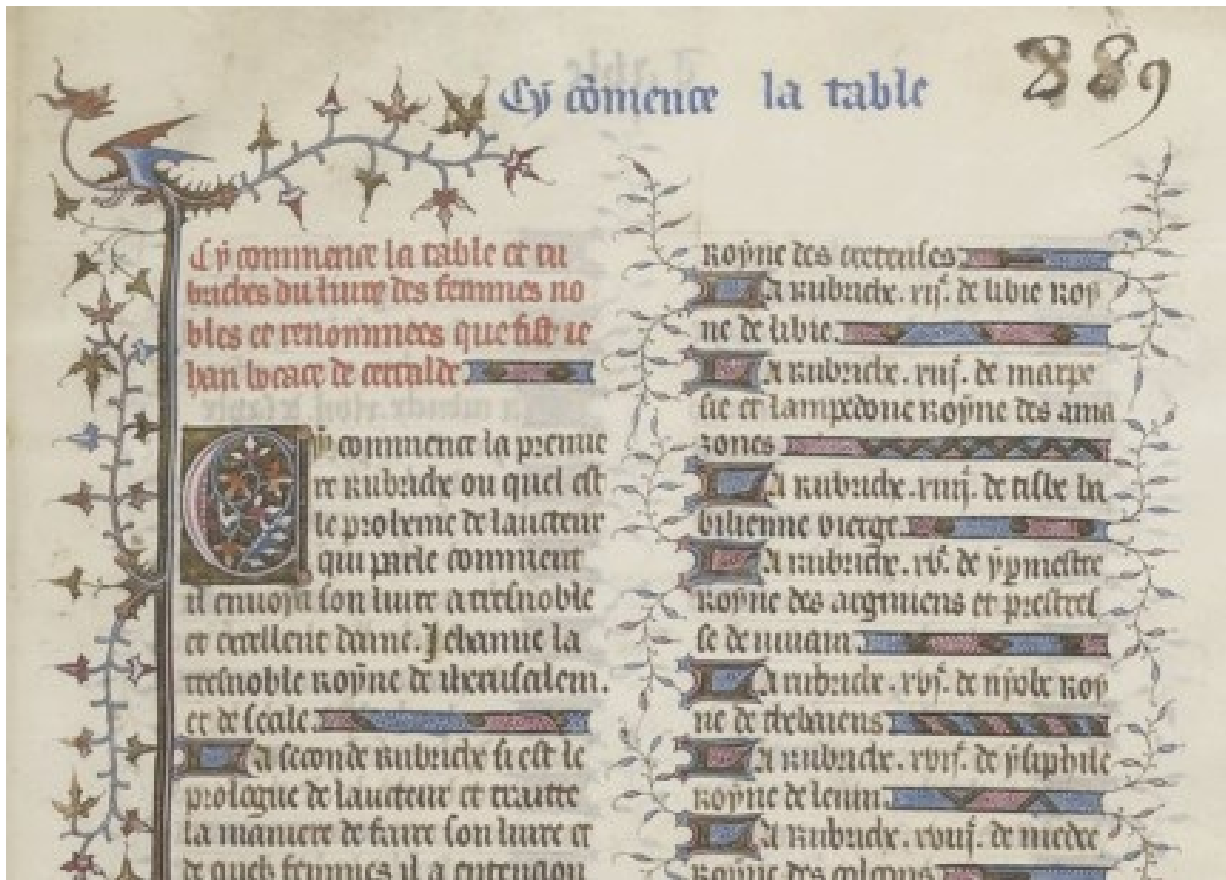 Cy cõmence la table
889
Cy commence la table et ru
briches du liure des femmes no
bles et renommees que fist ie
han bocace de certalde
Cy commence la premie
re Rubriche ou quel est
le proheme de laucteur
qui parle comment
il enuoya son liure a tresnoble
et excellent dame. Jehanne la
tresnoble royne de iherusalem.
et de secile.
La seconde Rubriche si est le
prologue de laucteur et traitte
la maniere de faire son liure et
de quelz femmes il a entencion
royne des
La Rubriche. xij. de libie roy
ne de libie.
La Rubriche. xiij. de marpe
sie et lampedone royne des ama
zones
La Rubriche. xiiij. de tisbe ba
bilienne vierge.
La Rubriche. xv. de ypmestre
Royne des argiuiens et prestres
se de
La rubriche. xvj. de nyobe roy
ne de thebaiens
La Rubriche. xvij. de ysiphile
royne de lenin.
La Rubriche. xviij. de medee
royne des colcons